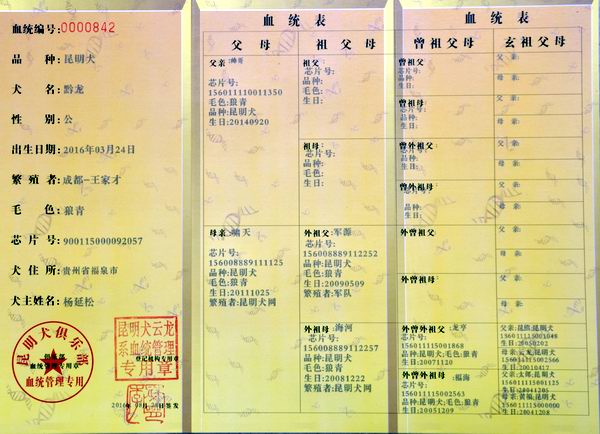 血统编号:0000842
品 种:昆明犬
犬 名:黔龙
性 别:公
出生日期:2016年03月24日
繁殖者:成都-王家才
毛 色:狼青
芯片号:900115000092057
犬住所:贵州省福泉市
犬主姓名:杨延松
昆明犬俱乐部
血统管理专用章
血统管理专用
昆明犬云龙
系血统管理
专用章
登记机构专用章
血统表
父母
父亲:帅哥
芯片号:
156011110011350
毛色:狼青
品种:昆明犬
生日:20140920
母亲:啸天
芯片号:
156008889111125
品种:昆明犬
毛色:狼青
生日:20111025
繁殖者:昆明犬网
祖父母
祖父:
芯片号:
品种:
毛色:
生日:
祖母:
芯片号:
品种:
毛色:
生日:
外祖父:军源
芯片号:
156008889112252
品种:昆明犬
毛色:狼青
生日:20090509
繁殖者:军队
外祖母:海河
芯片号:
156008889112257
品种:昆明犬
毛色:狼青
生日:20081222
繁殖者:昆明犬网
血统表
曾祖父母
曾祖父:
芯片号:
品种:
毛色:
生日:
曾祖母:
芯片号:
品种:
毛色:
生日:
曾外祖父:
芯片号:
品种:
毛色:
生日:
曾外祖母:
品种:
毛色:
生日:
外曾祖父:
外曾祖母:
外曾外祖父:龙亨
芯片号:
156011115001868
品种:昆明犬;毛色:狼青
生日:20071120
外曾外祖母:福海
芯片号:
156011115002563
品种:昆明犬;毛色:狼青
生日:20051209
玄祖父母
父亲:
母亲:
父亲:
母亲:
父亲:
母亲:
父亲:
母亲:
父亲:昆熊;昆明犬
生日:20050202
母亲:云龙;昆明犬
生日:20010417
父亲:太郎;昆明犬
156011115001125
生日:20041205
母亲:黄福;昆明犬
156011115000000
生日:20041208